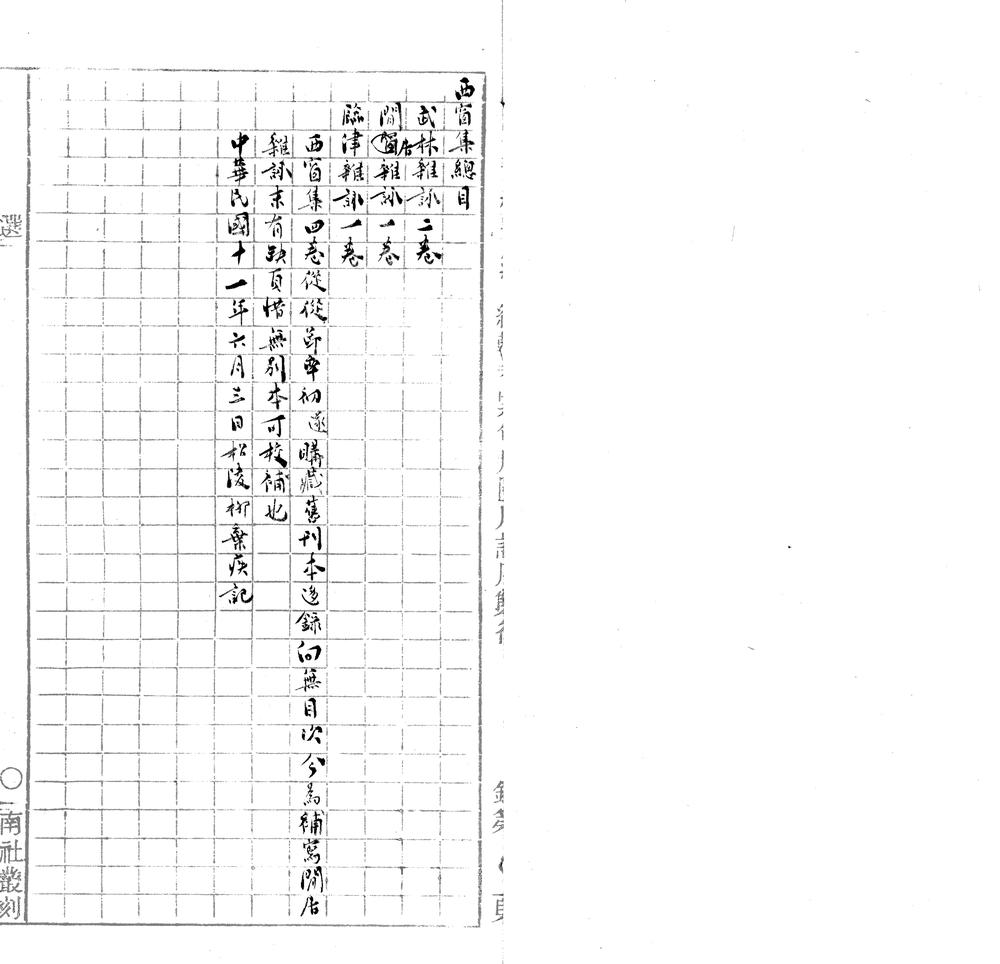 西窗集總目
武林雜詠二卷
閒居雜詠一卷
臨津雜詠一卷
西窗集四卷從從節率初遠購藏舊刊本迻錄向無目次今爲補寫閒居
雜詠末有缺頁惜無別本可校補也
中華民國十一年六月三日松陵柳棄疾記
選
〇
南社叢刻